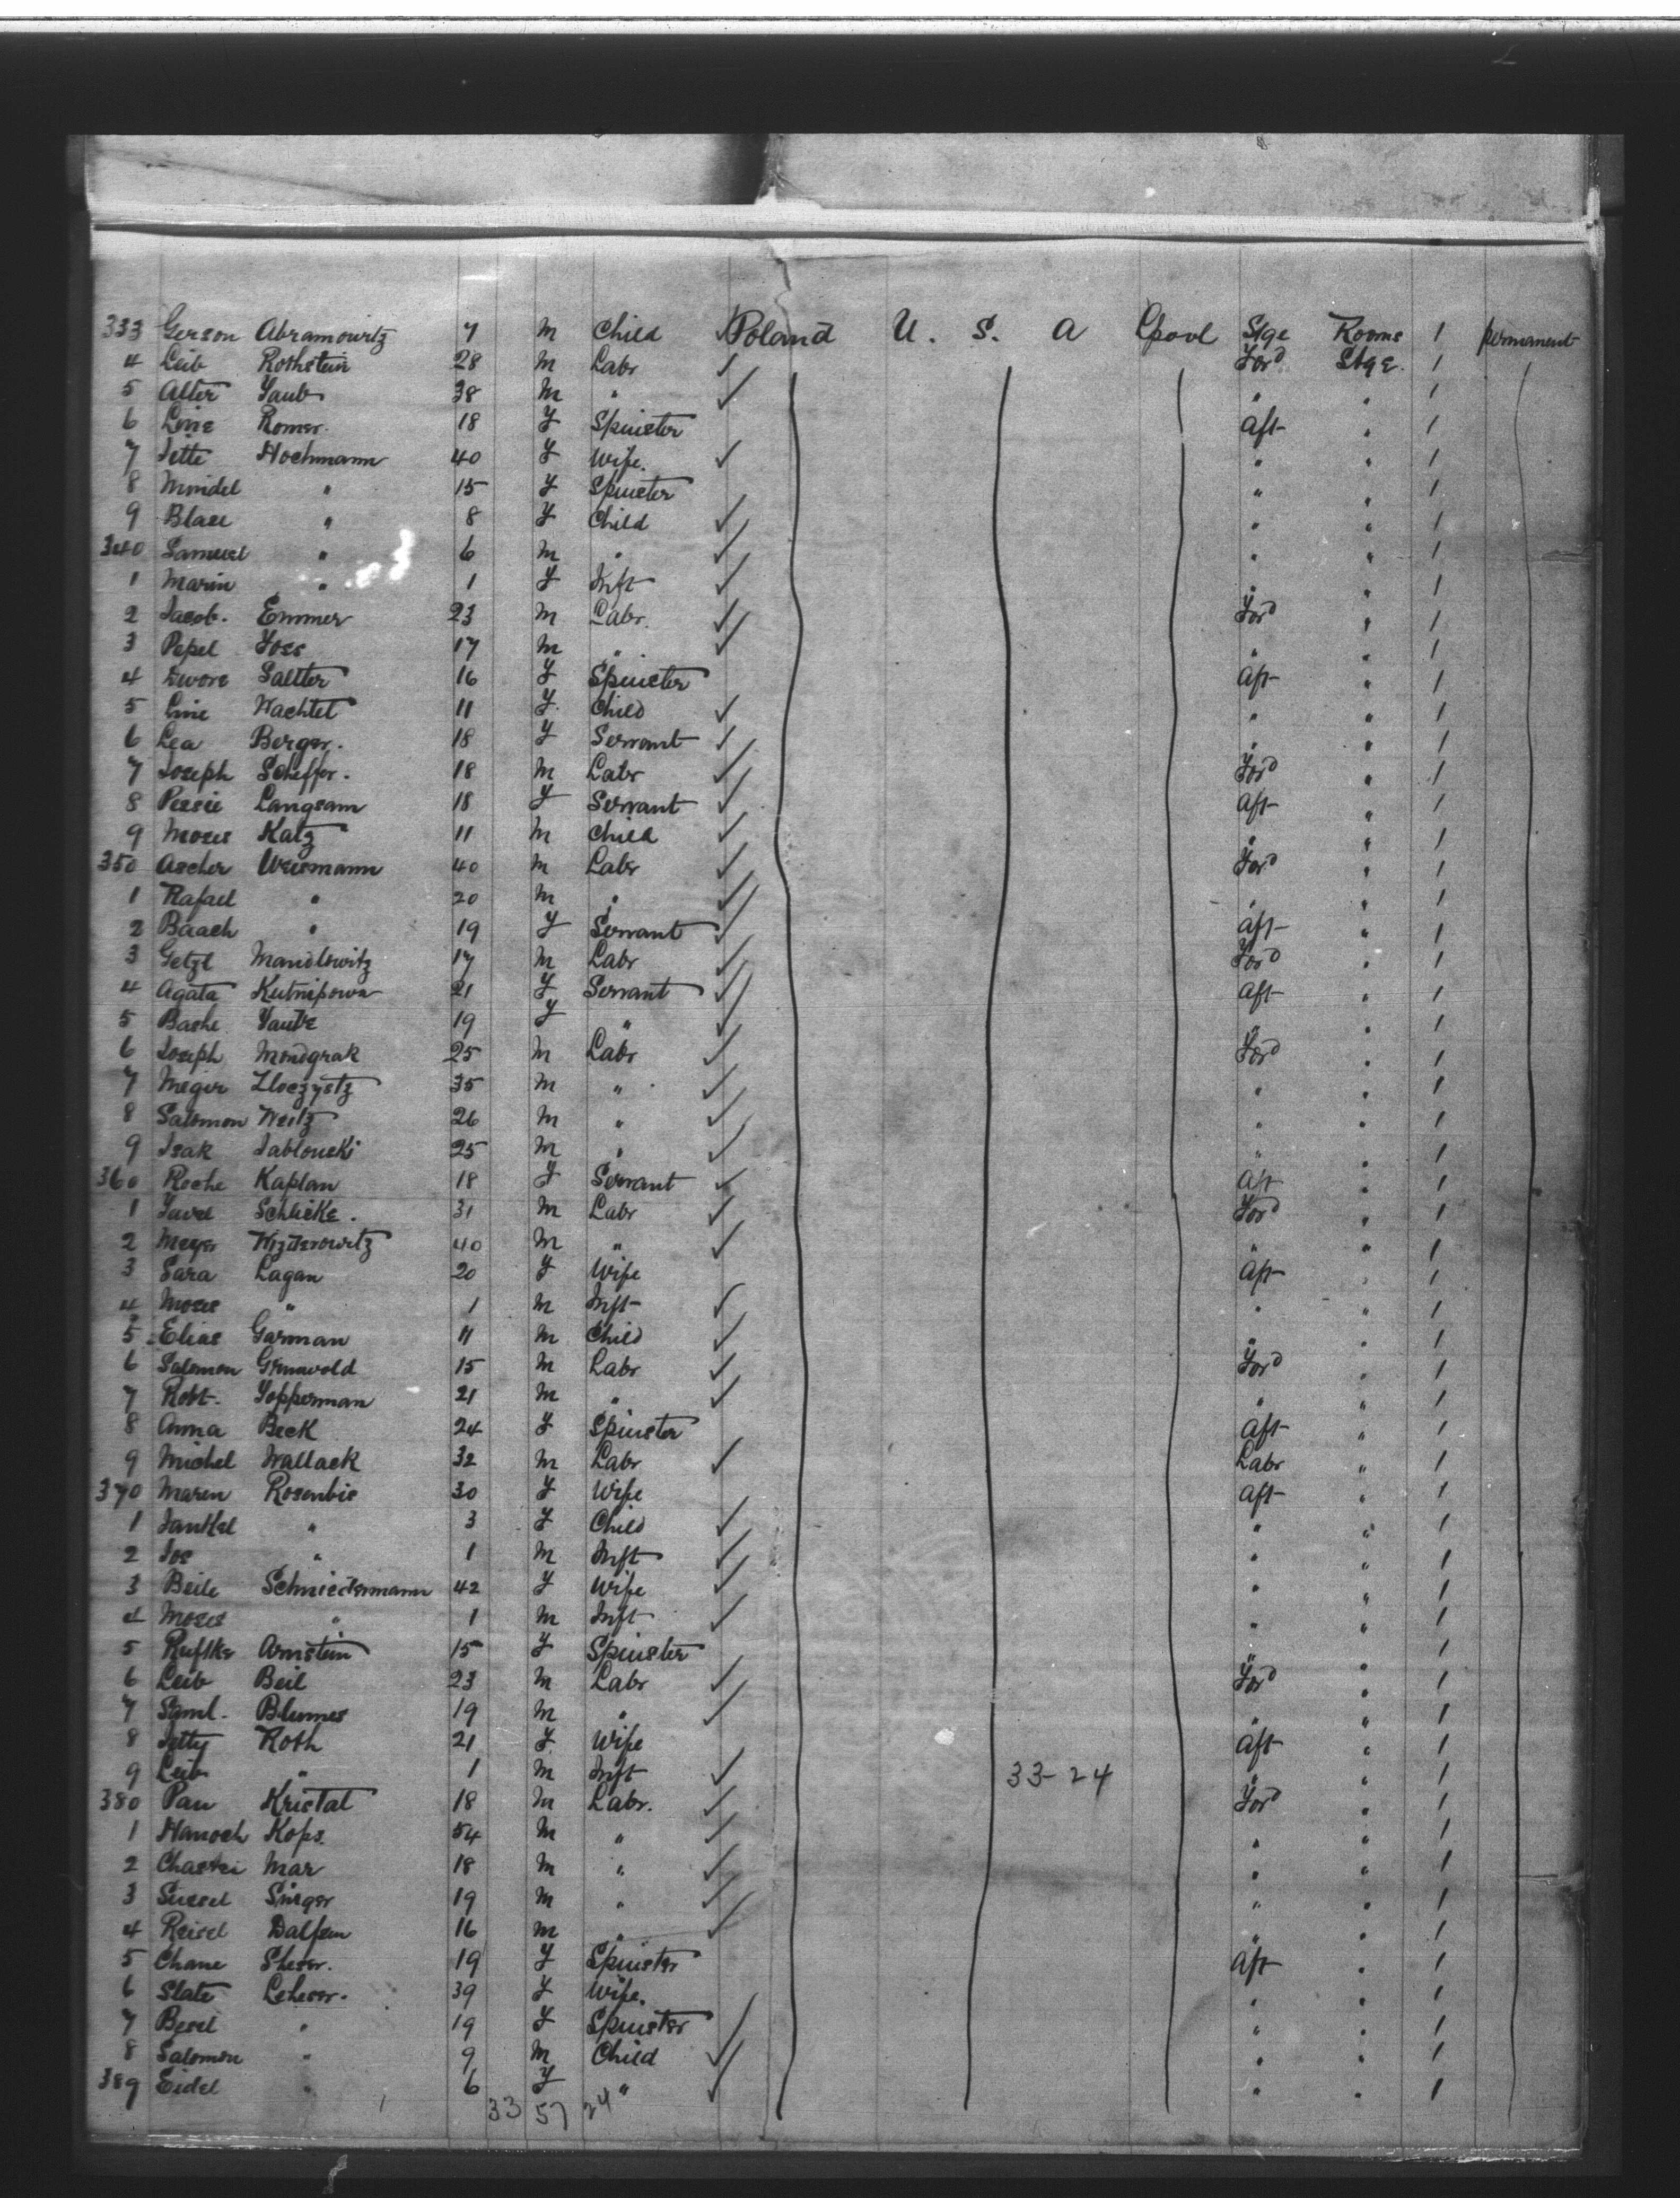 333 Gerson Abramowitz 7 M Child ✓ Poland U. S. A Lpool Stge Rooms 1 permanent
4 Leib Rothstein 28 M Labr ✓ Ford Stge. 1
5 Alter Taub 38 M " ✓ " " 1
6 Line Romer. 18 F Spinster Aft " 1
7 Jette Hochmann 40 F Wife. ✓ " " 1
8 Mindel " 15 F Spinster " " 1
9 " 8 F Child ✓ " " 1
340 Samuel " 6 M " ✓ " " 1
1 Marin " 1 F Inft ✓ " " 1
2 Jacob. Emmer 23 M Labr. ✓ Ford " 1
3 Pepel 17 M " ✓ " " 1
4 Dwore Saltter 16 F Spinster Aft " 1
5 Line Wachtel 11 F Child ✓ " " 1
6 Lea Berger. 18 F Servant ✓ " " 1
7 Joseph Scheffer. 18 M Labr ✓ Ford " 1
8 Pessie Langsam 18 F Servant ✓ Aft " 1
9 Moses Katz 11 M Child ✓ " " 1
350 Ascher Weismann 40 M Labr ✓ Ford " 1
1 Rafael " 20 M " ✓ " " 1
2 Baach " 19 F Servant ✓ Aft " 1
3 Getzl Mandlowitz 17 M Labr ✓ Ford " 1
4 Agata 21 F Servant ✓ Aft " 1
5 Bashe Taube 19 F " ✓ " " 1
6 Joseph Mondgrak 25 M Labr ✓ Ford " 1
7 35 M " ✓ " " 1
8 Salomon Weitz 26 M " ✓ " " 1
9 Isak Jablonski 25 M " ✓ " " 1
360 Roche Kaplan 18 F Servant ✓ Aft " 1
1 Schlicke. 31 M Labr ✓ Ford " 1
2 Meyer 40 M " ✓ " " 1
3 Sara Lagan 20 F Wife Aft " 1
4 Moses " 1 M Inft ✓ " " 1
5 Elias Garman 11 M Child ✓ " " 1
6 Salomon Grunwold 15 M Labr ✓ Ford " 1
7 Robt. Topperman 21 M " ✓ " " 1
8 Anna Beck 24 F Spinster Aft " 1
9 Michel Wallack 32 M Labr ✓ Labr " 1
370 Maren Rosenbie 30 F Wife Aft " 1
1 Jankel " 3 F Child ✓ " " 1
2 Jos " 1 M Inft ✓ " " 1
3 Beile Schniedermann 42 F Wife ✓ " " 1
4 Moses " 1 M Inft ✓ " " 1
5 Arnstein 15 F Spinster " " 1
6 Leib Beil 23 M Labr ✓ Ford " 1
7 Saml. Blumes 19 M " ✓ " " 1
8 Jetty Roth 21 F Wife Aft " 1
9 Leib " 1 M Inft ✓ 33-24 " " 1
380 Pau Kristal 18 M Labr. ✓ Ford " 1
1 Hanoch Kops. 54 M " ✓ " " 1
2 Mar 18 M " ✓ " " 1
3 Sussel Singer 19 M " ✓ " " 1
4 Reisel 16 M " ✓ " " 1
5 Chane 19 F Spinster Aft " 1
6 Slate 39 F Wife. " " 1
7 Besel " 19 F Spinster ✓ " " 1
8 Salomon " 9 M Child ✓ " " 1
389 Eidel " 6 F " ✓ " " 1
33 57 24